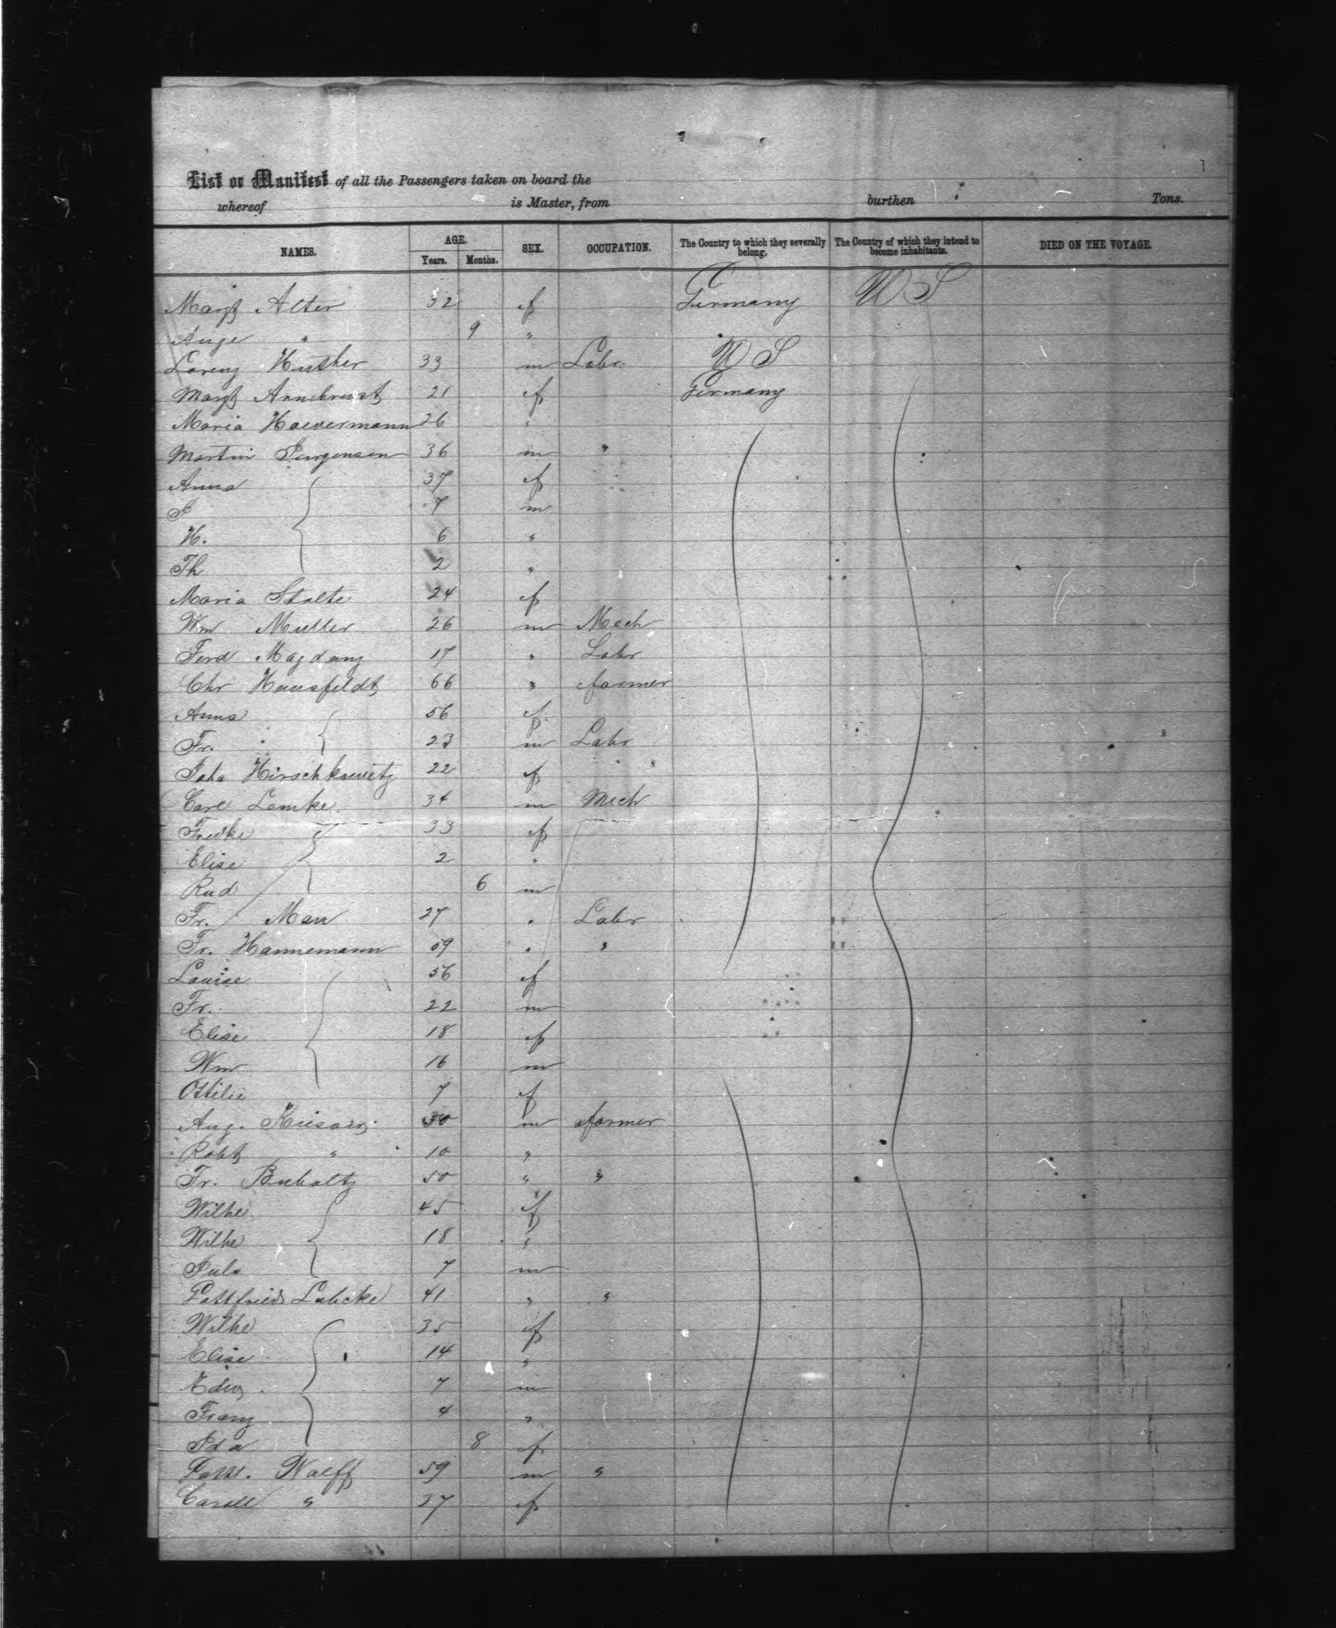 List or Manifest of all the Passengers taken on board the
whereof is Master, from burthen Tons.
NAMES. AGE. SEX. OCCUPATION. The Country to which they severally belong. The Country of which they intend to become inhabitants. DIED ON THE VOYAGE.
Years. Months.
Margt Alter 32 f Germany U S
Auge " 9 "
Lorenz Husker 33 m Labr. U S
Margt Armbrust 21 f Germany
Maria Haevermann 26 "
Martin Jurgensen 36 m "
Anna 37 f
J 7 m
H. 6 "
Th 2 "
Maria Stolte 24 f
Wm Muller 26 m Mech
Ferd Magdanz 17 " Labr
Chr Hausfeldt 66 " farmer
Anna 56 f
Fr. 23 m Labr
Joha Hirschkowitz 22 f
Carl Lemke 34 m Mech
Fredke 33 f
Elise 2 "
Rud 6 m
Fr. Man 27 " Labr
Fr. Hannemann 59 " "
Louise 56 f
Fr. 22 m
Elise 18 f
Wm 16 m
Ottilie 7 f
Aug. 30 m farmer
Robt " 10 "
Fr. Buholtz 50 " "
Wilhe 45 f
Wilhe 18 "
Juls 7 m
Gottfried Lubcke 41 " "
Wilhe 35 f
Elise 14 "
Edw 7 m
Franz 4 "
Ida 8 f
Gottl. Wolff 59 m "
Caroll " 27 f